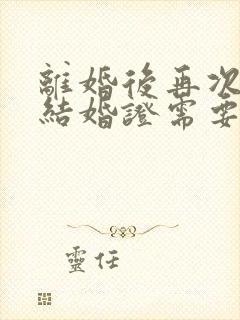 離婚後再次
結婚證需要
靈任